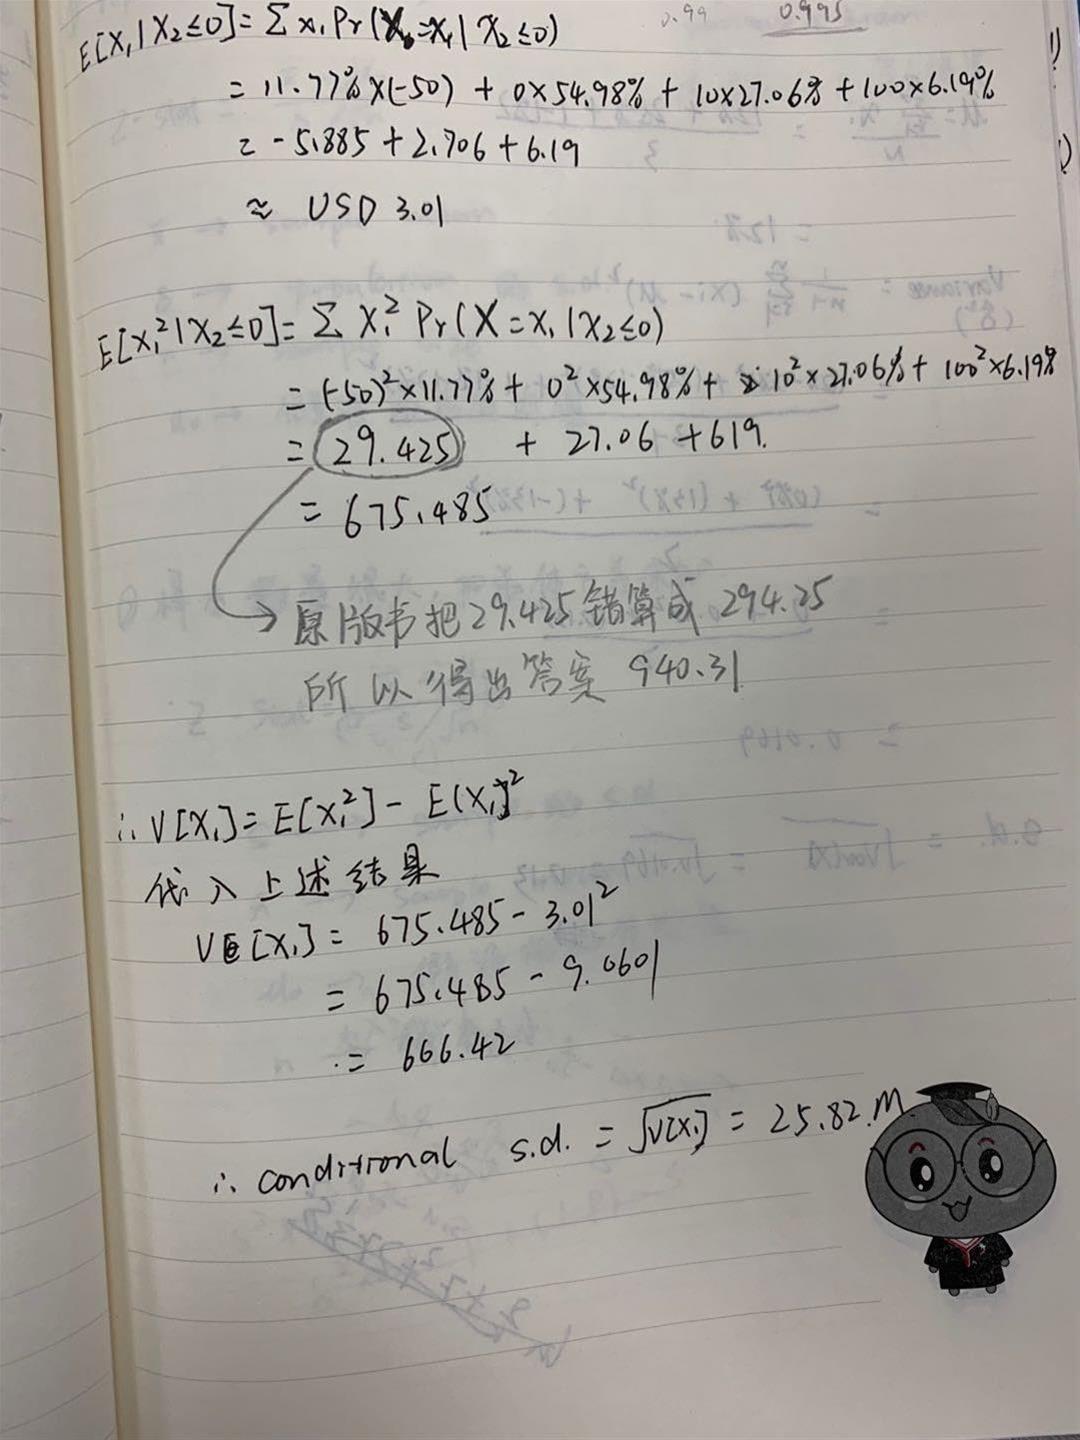 0.99 0.995
E[X₁|X₂≤0]=Σx₁Pr(X₁=x₁|X₂≤0)
= 11.77%×(-50) + 0×54.98% + 10×27.06% + 100×6.19%
= -5.885+2.706+6.19
≈ USD 3.01
E[X₁²|X₂≤0]=ΣX₁²Pr(X=x₁|X₂≤0)
= (-50)²×11.77% + 0²×54.98% + 10²×27.06% + 100²×6.19%
= 29.425 + 27.06 +619.
= 675.485
→原版书把29.425错算成294.25
所以得出答案 940.31
∴V[X₁]=E[X₁²]-E(X₁)²
代入上述结果
V[X₁]= 675.485-3.01²
= 675.485-9.0601
= 666.42
∴ conditional s.d. = √V[X₁] = 25.82.M